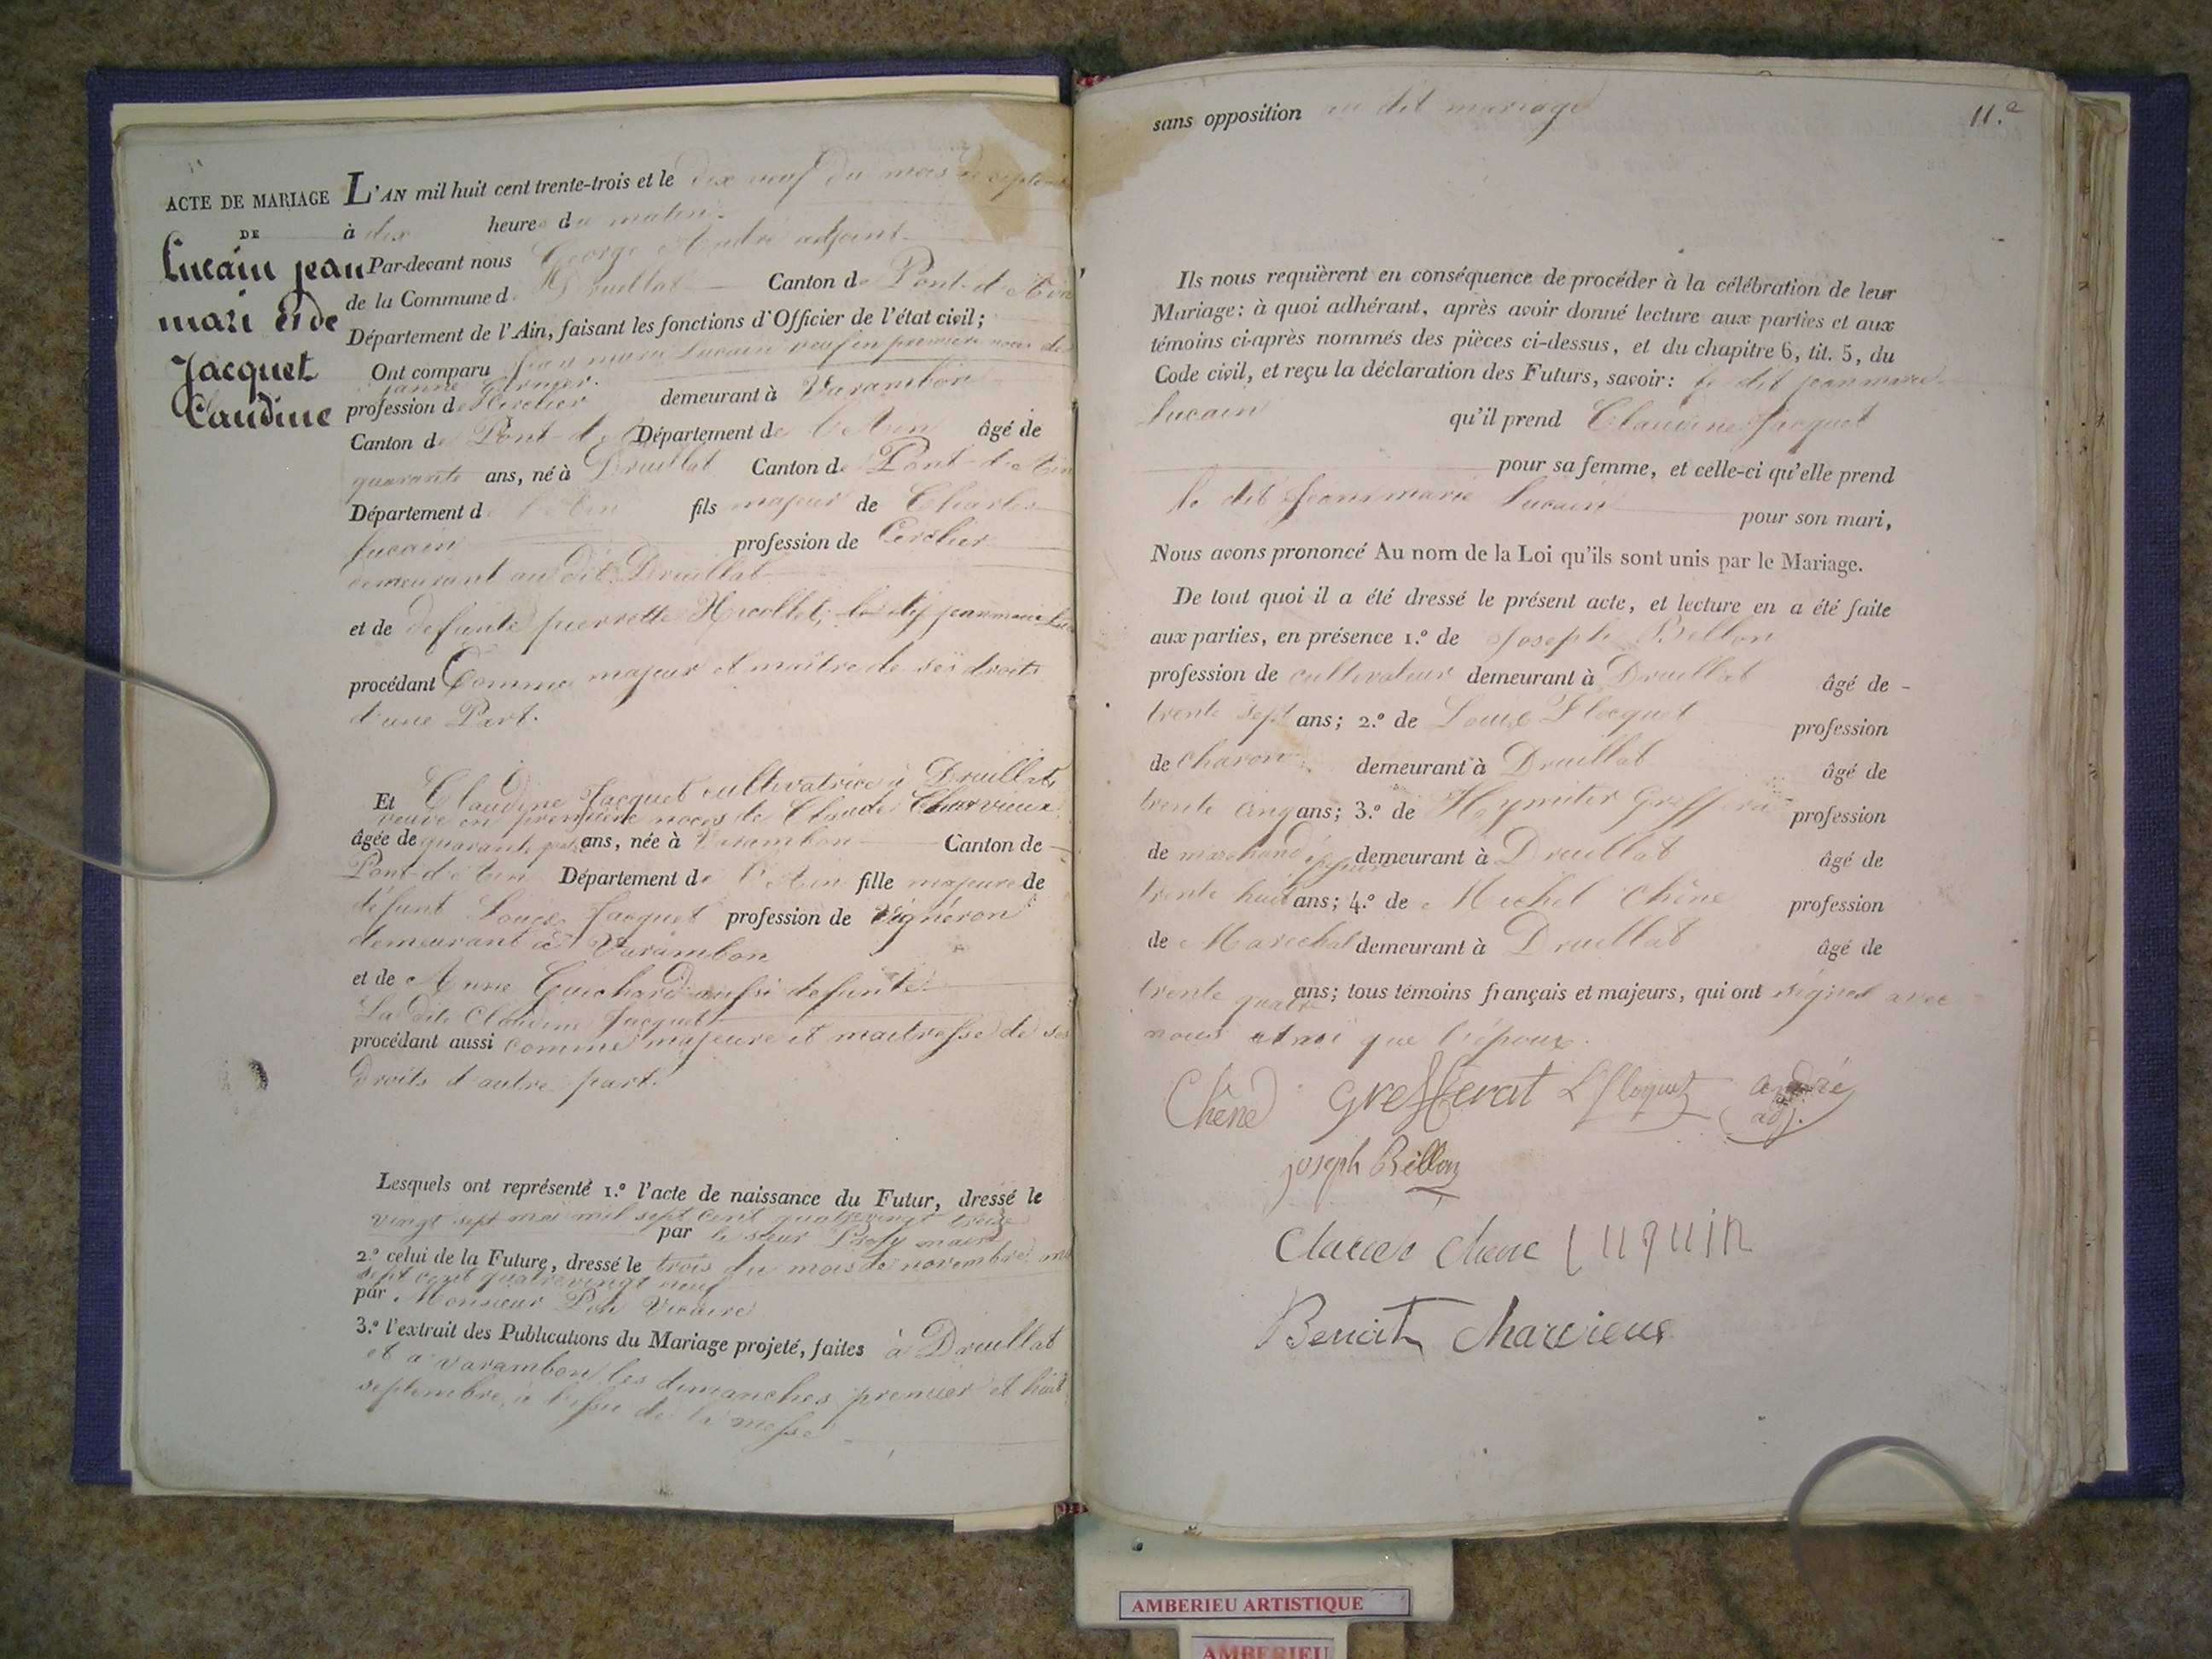 ACTE DE MARIAGE
DE
Lucain jean
mari et de
Jacquet
Claudine
L'AN mil huit cent trente-trois et le dix neuf du mois de septem
à dix heures du matin.
Par-devant nous George André adjoint
de la Commune d Druillat Canton de Pont-d'Ain
Département de l'Ain, faisant les fonctions d'Officier de l'état civil;
Ont comparu jean marie Lucain veuf en premiere noces de
janne
profession de Cerclier demeurant à Varambon
Canton de Pont-d' Département de l'Ain âgé de
quarante ans, né à Druillat Canton de Pont-d'Ain
Département de l'Ain fils majeur de Charles
Lucain profession de Cerclier
demeurant au dit Druillat
et de defunte pierrette le dit jean marie
procédant Comme majeur et maitre de ses droits
d'une Part.
Et Claudine Jacquet cultivatrice à Druillat
veuve en premiere noces de Claude Charvieux
âgée de quarante ans, née à Varambon Canton de
Pont-d'Ain Département de l'Ain fille majeure de
défunt Louis Jacquet profession de Vigneron
demeurant à Varambon
et de Anne Guichard aussi defunte
La dite Claudine Jacquet
procédant aussi comme majeure et maitresse de ses
droits d'autre part.
Lesquels ont représenté 1.º l'acte de naissance du Futur, dressé le
vingt sept mai mil sept cent quatre vingt treize
par le sieur maire
2.º celui de la Future, dressé le trois du mois de novembre mil
sept cent quatre vingt neuf
par Monsieur Vicaire
3.º l'extrait des Publications du Mariage projeté, faites à Druillat
et a varambon les dimanches premier et huit
septembre, à l'issue de la messe
sans opposition au dit mariage
11.e
Ils nous requièrent en conséquence de procéder à la célébration de leur
Mariage: à quoi adhérant, après avoir donné lecture aux parties et aux
témoins ci-après nommés des pièces ci-dessus, et du chapitre 6, tit. 5, du
Code civil, et reçu la déclaration des Futurs, savoir: le dit jean marie
Lucain qu'il prend Claudine Jacquet
pour sa femme, et celle-ci qu'elle prend
le dit Jean marie Lucain pour son mari,
Nous avons prononcé Au nom de la Loi qu'ils sont unis par le Mariage.
De tout quoi il a été dressé le présent acte, et lecture en a été faite
aux parties, en présence 1.º de Joseph Billon
profession de cultivateur demeurant à Druillat âgé de
trente sept ans; 2.º de Louis Floquet profession
de charon demeurant à Druillat âgé de
trente cinq ans; 3.º de Grefferat profession
de marchand épicier demeurant à Druillat âgé de
trente huit ans; 4.º de Michel Chêne profession
de Marechal demeurant à Druillat âgé de
trente quatre ans; tous témoins français et majeurs, qui ont signed avec
nous ainsi que l'époux.
Chêne Grefferat L floquet andré
adj.
joseph Billon
chene Luquin
Benoit charvieux
AMBERIEU ARTISTIQUE
AMBERIEU